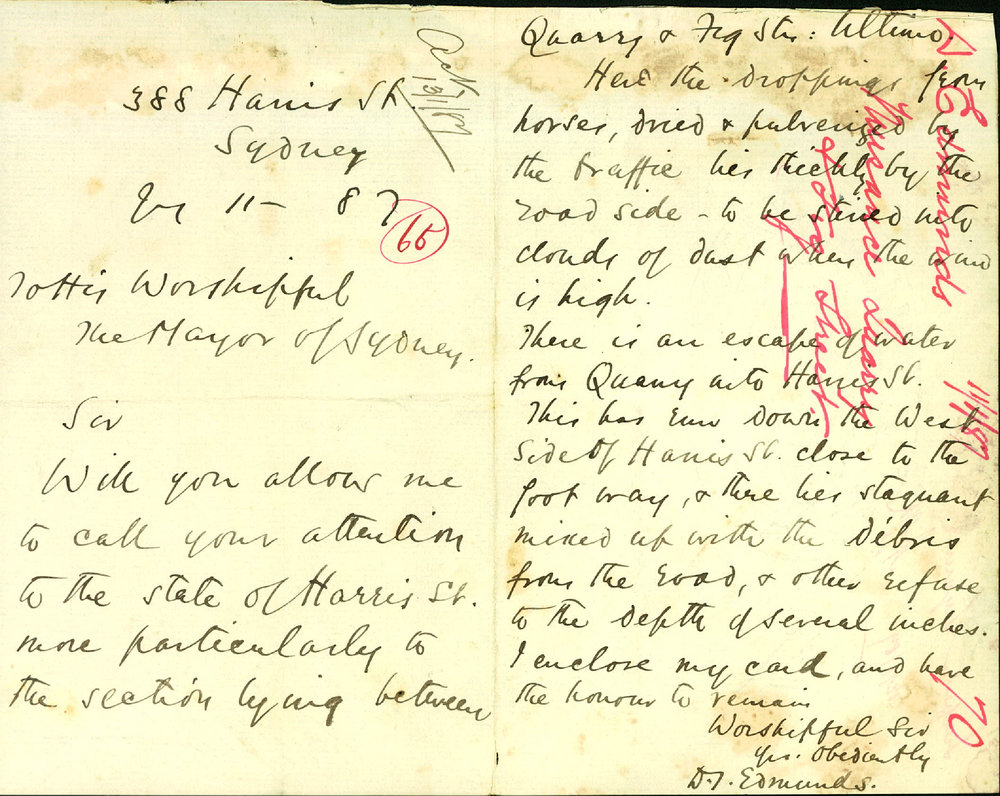 388 Harris St.
Sydney
Jay 11 - 87
65
Ack
13/1/87
To His Worshipful
The Mayor of Sydney.
Sir
Will you allow me
to call your attention
to the state of Harris St.
more particularly to
the section lying between
Quarry & Fig Sts: Ultimo.
Here the droppings from
horses, dried & pulverized by
the traffic lies thickly by the
road side - to be stirred into
clouds of dust when the wind
is high.
There is an escape of water
from Quarry into Harris St.
This has run down the West
side of Harris St. close to the
foot way, & there lies stagnant
mixed up with the débris
from the road, & other refuse
to the depth of several inches.
I enclose my card, and have
the honour to remain
Worshipful Sir
Yrs. Obediently
D. J. Edmunds.
D. Edmunds 11/1/87
Nuisance Quarry
& Fig Street.
70